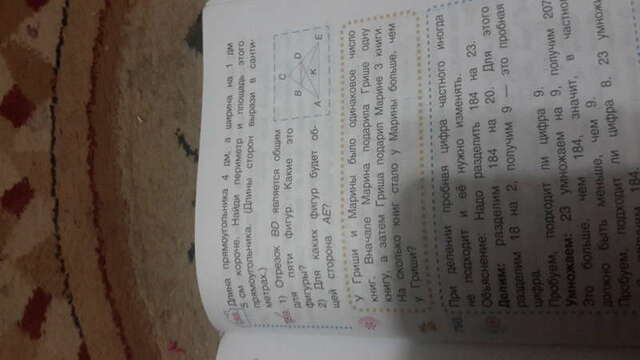 Длина прямоугольника 4 дм, а ширина на 1 дм
5 см короче. Найди периметр и площадь этого
прямоугольника. (Длины сторон вырази в санти-
метрах.)
1) Отрезок BD является общим
для пяти фигур. Какие это
фигуры?
2) Для каких фигур будет об-
щей сторона AE?
C
B
D
K
A
E
У Гриши и Марины было одинаковое число
книг. Вначале Марина подарила Грише одну
книгу, а затем Гриша подарил Марине 3 книги.
На сколько книг стало у Марины больше, чем
у Гриши?
При делении пробная цифра частного иногда
не подходит и её нужно изменять.
Объяснение: Надо разделить 184 на 23.
Делим: разделим 184 на 20. Для этого
разделим 18 на 2, получим 9 — это пробная
цифра.
Пробуем, подходит ли цифра 9.
Умножаем: 23 умножаем на 9, получим 207.
Это больше, чем 184, значит, в частном
должно быть меньше, чем 9.
Пробуем, подходит ли цифра 8. 23 умножим